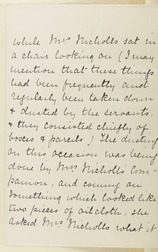 while Mrs Nicholls sat in
a chair looking on (I may
mention that these things
had been frequently and
regularly been taken down
& dusted by the servants.
& they consisted chiefly of
boxes & parcels.) The dusting
on this occasion was being
done by Mrs Nicholls Com-
panion, and coming on
something which looked like
two pieces of oilcloth, she
asked Mrs Nicholls what it